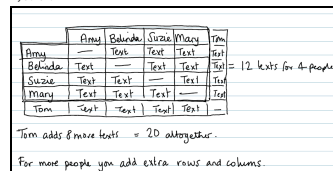 Amy Belinda Suzie Mary Tom
Amy — Text Text Text Text
Belinda Text — Text Text Text = 12 texts for 4 people
Suzie Text Text — Text Text
Mary Text Text Text — Text
Tom Text Text Text Text —
Tom adds 8 more texts = 20 altogether.
For more people you add extra rows and colums.